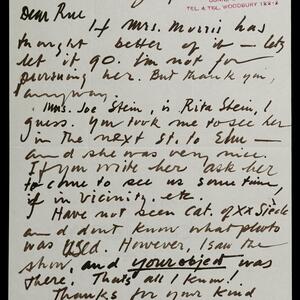 TEL. & TEL. WOODBURY
Dear Rue
If Mrs. Morris has
thought better of it — lets
let it go. I'm not for
pursuing her. But thank you,
anyway.
Mrs. Joe Stein, is Rita Stein, I
guess. You took me to see her
in the next St. to Elm —
and she was very nice.
If you write her ask her
to come to see us some time,
if in vicinity, etc.
Have not seen Cat. of XX Siècle
and don't know what photo
was used. However, I saw the
show, and your object was
there. That's all I know!
Thanks for your kind